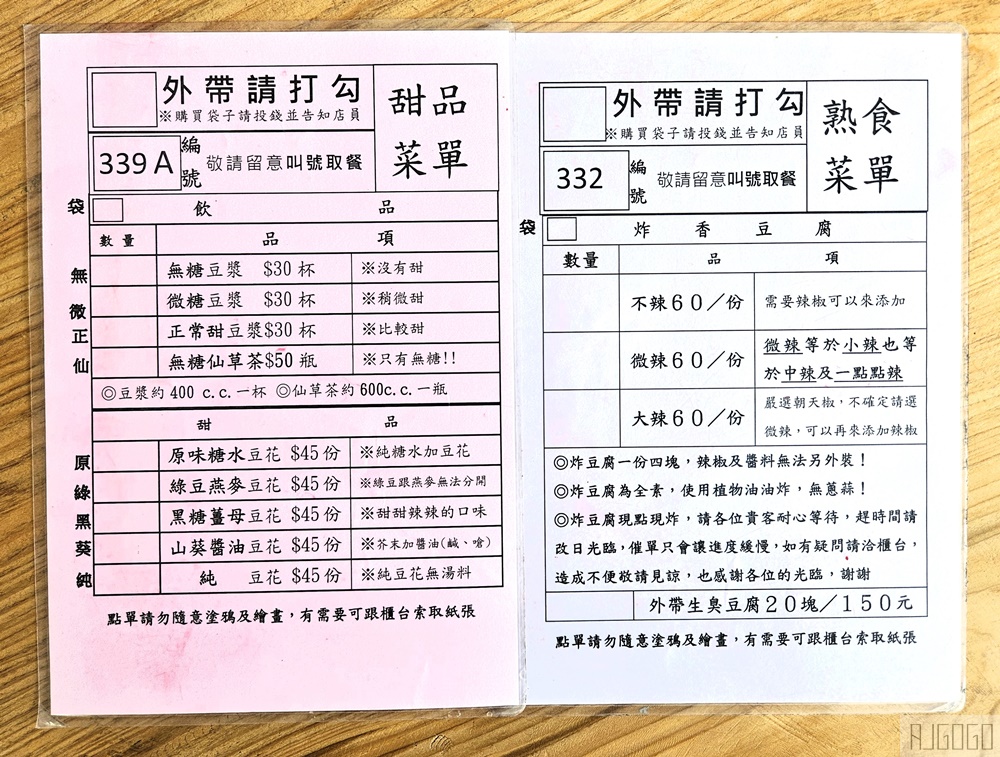 外帶請打勾
※購買袋子請投錢並告知店員
甜品
菜單
339 A 編號 敬請留意叫號取餐
袋 飲品
數量 品項
無 無糖豆漿 $30 杯 ※沒有甜
微 微糖豆漿 $30 杯 ※稍微甜
正 正常甜豆漿$30 杯 ※比較甜
仙 無糖仙草茶$50 瓶 ※只有無糖!!
◎豆漿約 400 c.c.一杯 ◎仙草茶約 600c.c.一瓶
甜品
原 原味糖水豆花 $45 份 ※純糖水加豆花
綠 綠豆燕麥豆花 $45 份 ※綠豆跟燕麥無法分開
黑 黑糖薑母豆花 $45 份 ※甜甜辣辣的口味
葵 山葵醬油豆花 $45 份 ※芥末加醬油(鹹、嗆)
純 純 豆花 $45 份 ※純豆花無湯料
點單請勿隨意塗鴉及繪畫，有需要可跟櫃台索取紙張
外帶請打勾
※購買袋子請投錢並告知店員
熟食
菜單
332 編號 敬請留意叫號取餐
袋 炸香豆腐
數量 品項
不辣６０／份 需要辣椒可以來添加
微辣６０／份 微辣等於小辣也等
於中辣及一點點辣
大辣６０／份 嚴選朝天椒，不確定請選
微辣，可以再來添加辣椒
◎炸豆腐一份四塊，辣椒及醬料無法另外裝！
◎炸豆腐為全素，使用植物油油炸，無蔥蒜！
◎炸豆腐現點現炸，請各位貴客耐心等待，趕時間請
改日光臨，催單只會讓進度緩慢，如有疑問請洽櫃台，
造成不便敬請見諒，也感謝各位的光臨，謝謝
外帶生臭豆腐２０塊／１５０元
點單請勿隨意塗鴉及繪畫，有需要可跟櫃台索取紙張
AJGOGO